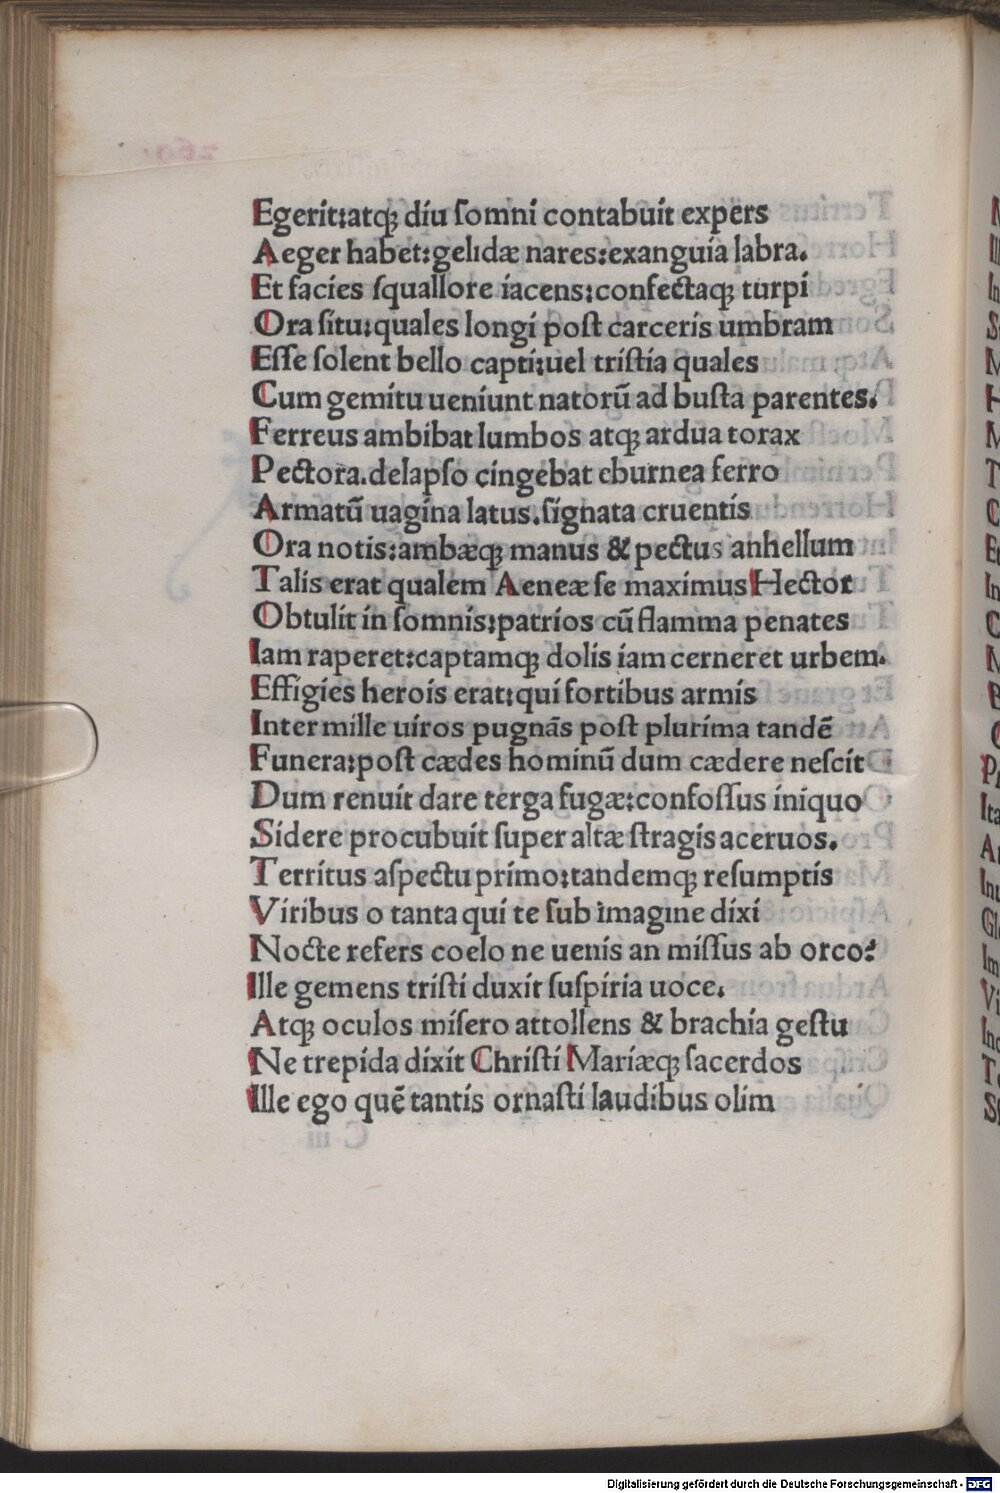 Egerit:atq̄ꝫ diu ſomni contabuit expers
Aeger habet:gelidæ nares:exanguia labra.
Et facies ſquallore iacens:confectaqꝫ turpi
Ora ſitu:quales longi poſt carceris umbram
Eſſe ſolent bello capti:uel triſtia quales
Cum gemitu ueniunt natorū ad buſta parentes.
Ferreus ambibat lumbos atqꝫ ardua torax
Pectora.delapſo cingebat eburnea ferro
Armatū uagina latus.ſignata cruentis
Ora notis:ambæqꝫ manus & pectus anhellum
Talis erat qualem Aeneæ ſe maximus Hector
Obtulit in ſomnis:patrios cū flamma penates
Iam raperet:captamqꝫ dolis iam cerneret urbem.
Effigies herois erat:qui fortibus armis
Inter mille uiros pugnās poſt plurima tandē
Funera:poſt cædes hominū dum cædere neſcit
Dum renuit dare terga fugæ:confoſſus iniquo
Sidere procubuit ſuper altæ ſtragis aceruos.
Territus aſpectu primo:tandemqꝫ reſumptis
Viribus o tanta qui te ſub imagine dixi
Nocte refers coelo ne uenis an miſſus ab orco?
Ille gemens triſti duxit ſuſpiria uoce.
Atqꝫ oculos miſero attollens & brachia geſtu
Ne trepida dixit Chriſti Mariæqꝫ ſacerdos
Ille ego quē tantis ornaſti laudibus olim
Digitalisierung gefördert durch die Deutsche Forschungsgemeinschaft - DFG